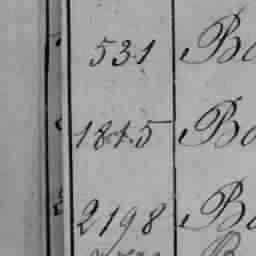 531 Bo
1845 Bo
2198 Bo